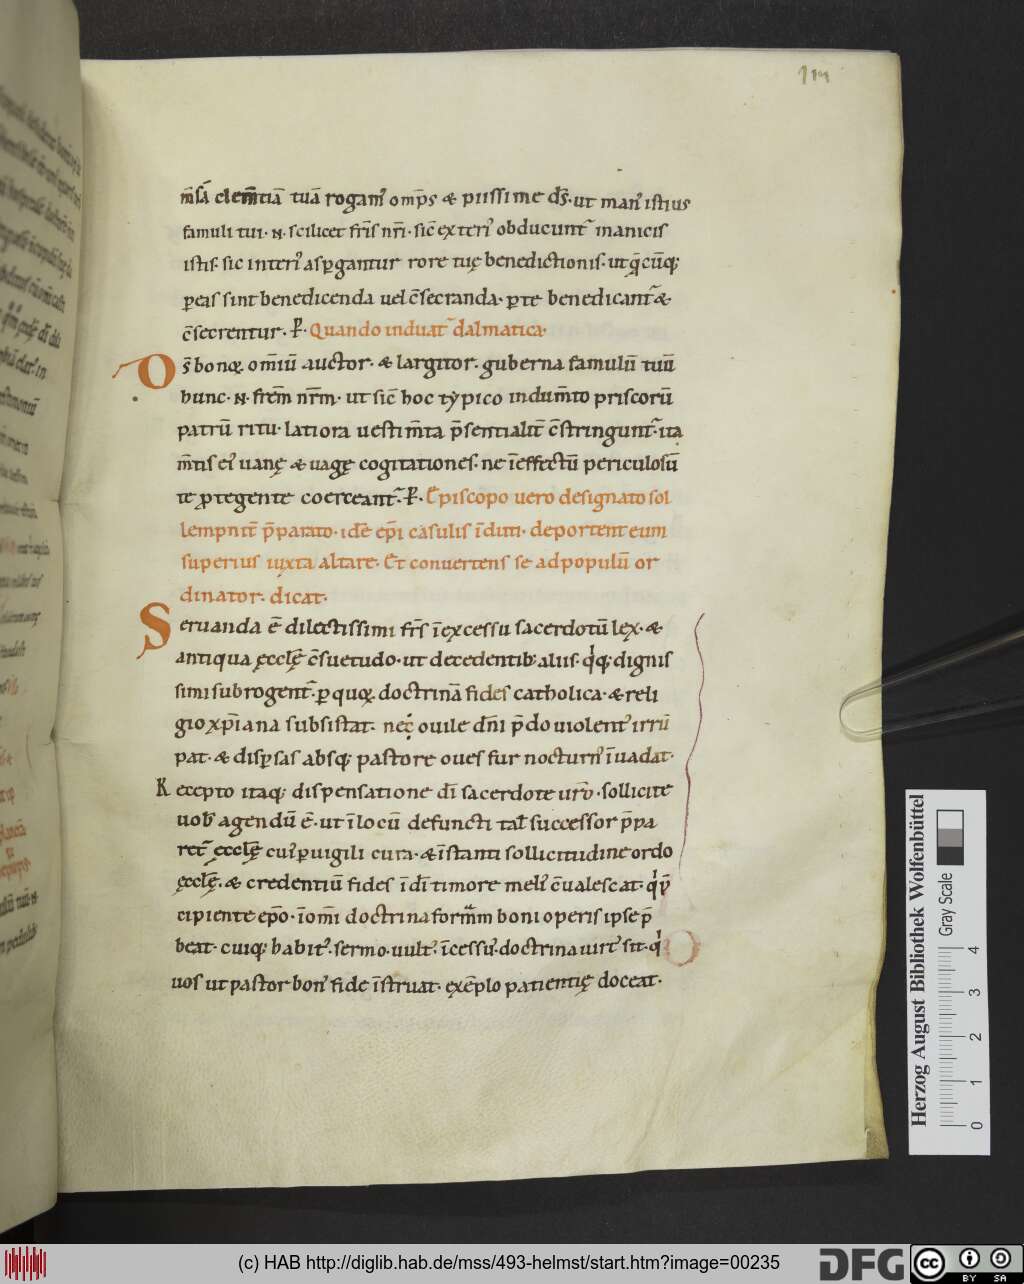 114
m̄sā clem̄tiā tuā rogam᷒ omp̄s & piissime d̄s· ut man᷒ istius
famuli tui· N· scilicet fr̄is nr̄i· sic̄ exteri᷒ obducunt᷒ manicis
istis· sic interi᷒ asꝑgantur rore tuę benedictionis· ut q̄cūq;
ꝑ eas sint benedicenda uel c̄secranda· ꝑ te benedicant᷒ &
c̄secrentur· R̄· Quando induat᷒ dalmatica·
D̄s bonoꝝ om̄iū auctor· & largitor· guberna famulū tuū
hunc· N· fr̄em nr̄m· ut sic̄ hoc typico indum̄to priscorū
patrū ritu· latiora uestim̄ta p̄sentialit̄ c̄stringunt᷒· ita
m̄tis ei᷒ uanę & uagę cogitationes· ne īeffectū periculosū
te ꝓtegente coerceant᷒· R̄· Episcopo uero designato sol
lempnit̄ p̄parato· idē ep̄i casulis īduti· deportent eum
superius iuxta altare· Et conuertens se ad populū or
dinator· dicat·
Seruanda ē dilectissimi fr̄s ī excessu sacerdotū lex· &
antiqua ęcclę̄ c̄suetudo· ut decedentib; aliis· qͥq; dignis
simi subrogent᷒· ꝑ quoꝝ doctrinā fides catholica· & reli
gio xp̄iana subsistat· nec ouile dn̄i p̄do uiolent᷒ irrū
pat· & disꝑsas absq; pastore oues fur nocturn᷒ īuadat·
Recepto itaq; dispensatione dī sacerdote ur̄o· sollicite
uob᷒ agendū ē· ut ī locū defuncti tal̄ successor p̄pa
ret᷒ ęcclę̄ cui᷒ ꝑuigili cura· & īstanti sollicitudine ordo
ęcclę̄· & credentiū fides ī dī timore meli᷒ c̄ualescat· qͥ p̄
cipiente ep̄o· ī om̄i doctrina formā boni operis ipse p̄
beat· cuiq; habit᷒· sermo· uult᷒· īcessu᷒· doctrina uirt᷒ sit· qͥ
uos ut pastor bon᷒ fide īstruat· exēplo patientię doceat·
Herzog August Bibliothek Wolfenbüttel
Gray Scale
0 1 2 3 4
(c) HAB http://diglib.hab.de/mss/493-helmst/start.htm?image=00235
DFG
cc BY SA